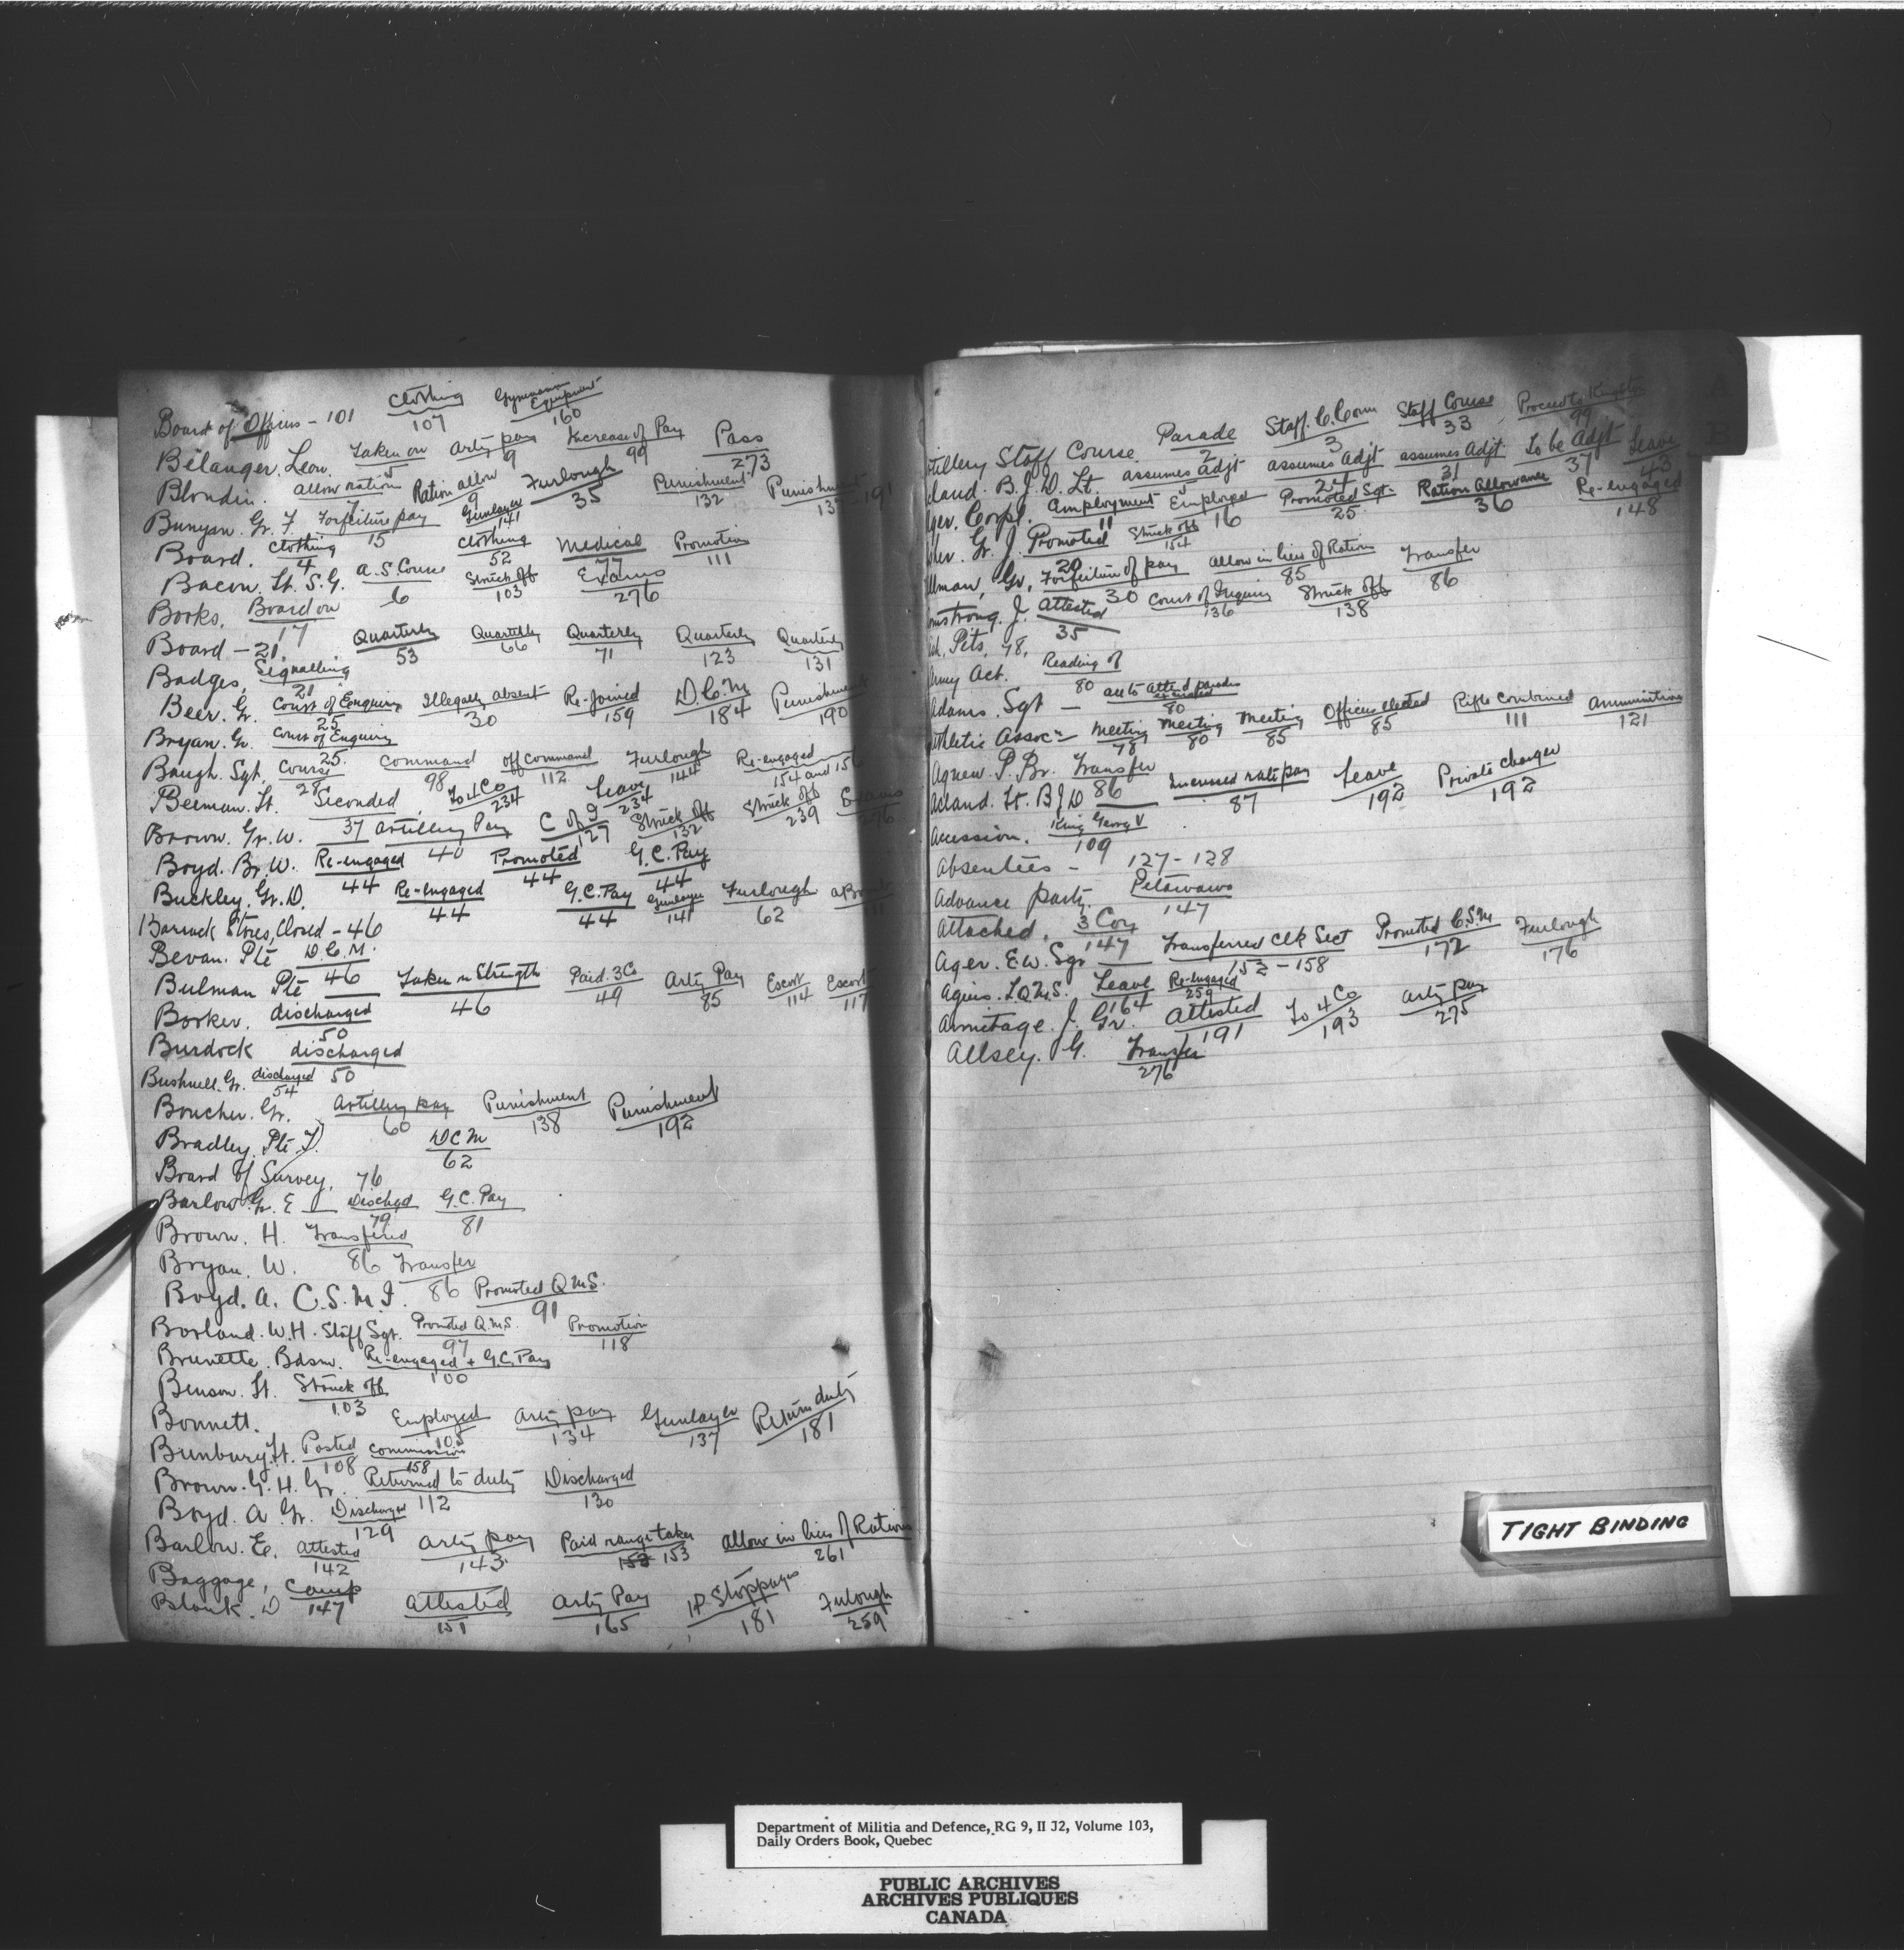 Board of Officers - 101 Clothing 107 Gymnasium Equipment 160
Bélanger. Leon. Taken on 5 Arty pay 9 Increase of Pay 99 Pass 273
Blondin. Allow ration 7 Ration allow 9 Furlough 35 Punishment 132 Punishment 137 191
Bunyan. Gr. F. Forfeiture pay 15 Gunlayer 141
Board. Clothing 4 Clothing 52 Medical 77 Promotion 111
Bacon. Lt. S.G. A.S. Course 6 Struck off 103 Exams 276
Books. Board on 17
Board - 21. Quarterly 53 Quarterly 66 Quarterly 71 Quarterly 123 Quarterly 131
Badges. Signalling 21
Beer. Gr. Court of Enquiry 25 Illegally absent 30 Re-joined 159 D.C.M 184 Punishment 190
Bryan. Gr. Court of Enquiry 25.
Baugh. Sgt. Course 28 Command 98 off Command 112 Furlough 144 Re-engaged 154 and 156
Beeman. Lt. Seconded 37 To 4 Co 234 Leave 234 Struck off 239 Exams 276
Brown. Gr. W. Artillery Pay 40 C of I 127 Struck off 132
Boyd. Br. W. Re-engaged 44 Promoted 44 G.C. Pay 44
Buckley. Gr. D. Re-engaged 44 G.C. Pay 44 Gunlayer 141 Furlough 62 111
Barrack Stores, Closed - 46
Bevan. Pte D.C.M. 46
Bulman Pte Taken on Strength 46 Paid. 3 Co 49 Arty Pay 85 Escort 114 Escort 117
Borker. discharged 50
Burdock discharged 50
Bushnell. Gr. discharged 54
Boucher. Gr. Artillery pay 60 Punishment 138 Punishment 192
Bradley. Pte. J. DCM 62
Board of Survey. 76
Barlow Gr. E Dischgd 79 G.C. Pay 81
Brown. H. Transfered 86
Bryan. W. Transfer 86
Boyd. A. C.S.M.I. Promoted Q.M.S. 91
Borland. W.H. Staff Sgt. Promoted Q.M.S. 97 Promotion 118
Brunette. Bdsm. Re-engaged + G.C. Pay 100
Benson. Lt. Struck off 103
Bonnett. Employed 105 Arty pay 134 Gunlayer 137 Return duty 181
Bunbury. Lt. Posted 108 Commission 158
Brown. G.H. Gr. Returned to duty 112 Discharged 130
Boyd. A Gr. Discharged 129
Barlow. E. Attested 142 Arty pay 143 Paid range taker 153 153 allow in lieu of Rations 261
Baggage, Camp 147
D Attested 151 Arty Pay 165 Stoppages 181 Furlough 259
tillery Staff Course Parade 2 Staff. C. Com 3 Staff Course 33 Proceed to Kingston 99
cland. B.J.D. Lt. assumes adjt 5 assumes Adjt 24 assumes Adjt 31 To be Adjt 37 Leave 43
ger. Corpl. Employment 11 Employed 16 Promoted Sgt 25 Ration Allowance 36 Re-engaged 148
Gr. J. Promoted 20 Struck off 154
llman, Gr. Forfeiture of pay 30 Allow in lieu of Ration 85 Transfer 86
mstrong. J. Attested 35 Court of Inquiry 136 Struck off 138
Pits, 78,
rmy Act. Reading of 80
Adams. Sgt - Attend parades 80
thletic Assocn Meeting 78 Meeting 80 Meeting 85 Officers elected 85 Rifle Combined 111 Ammunition 121
Agnew. P. Br. Transfer 86
Acland. Lt. B J D Increased rate pay 87 Leave 192 Private charger 192
Accession. King George V 109
Absentees - 127-128
Advance party. Petawawa 147
Attached. 3 Coy 147
Ager. E.W. Sgr Transferred Clk Sect 152-158 Promoted C.S.M 172 Furlough 176
Agius. I.Q.M.S. Leave 164 Re-Engaged 259
Armitage. J. Gr. Attested 191 To 4 Co 193 Arty pay 275
Allsey. G. Transfer 276
TIGHT BINDING
Department of Militia and Defence, RG 9, II J2, Volume 103,
Daily Orders Book, Quebec
PUBLIC ARCHIVES
ARCHIVES PUBLIQUES
CANADA